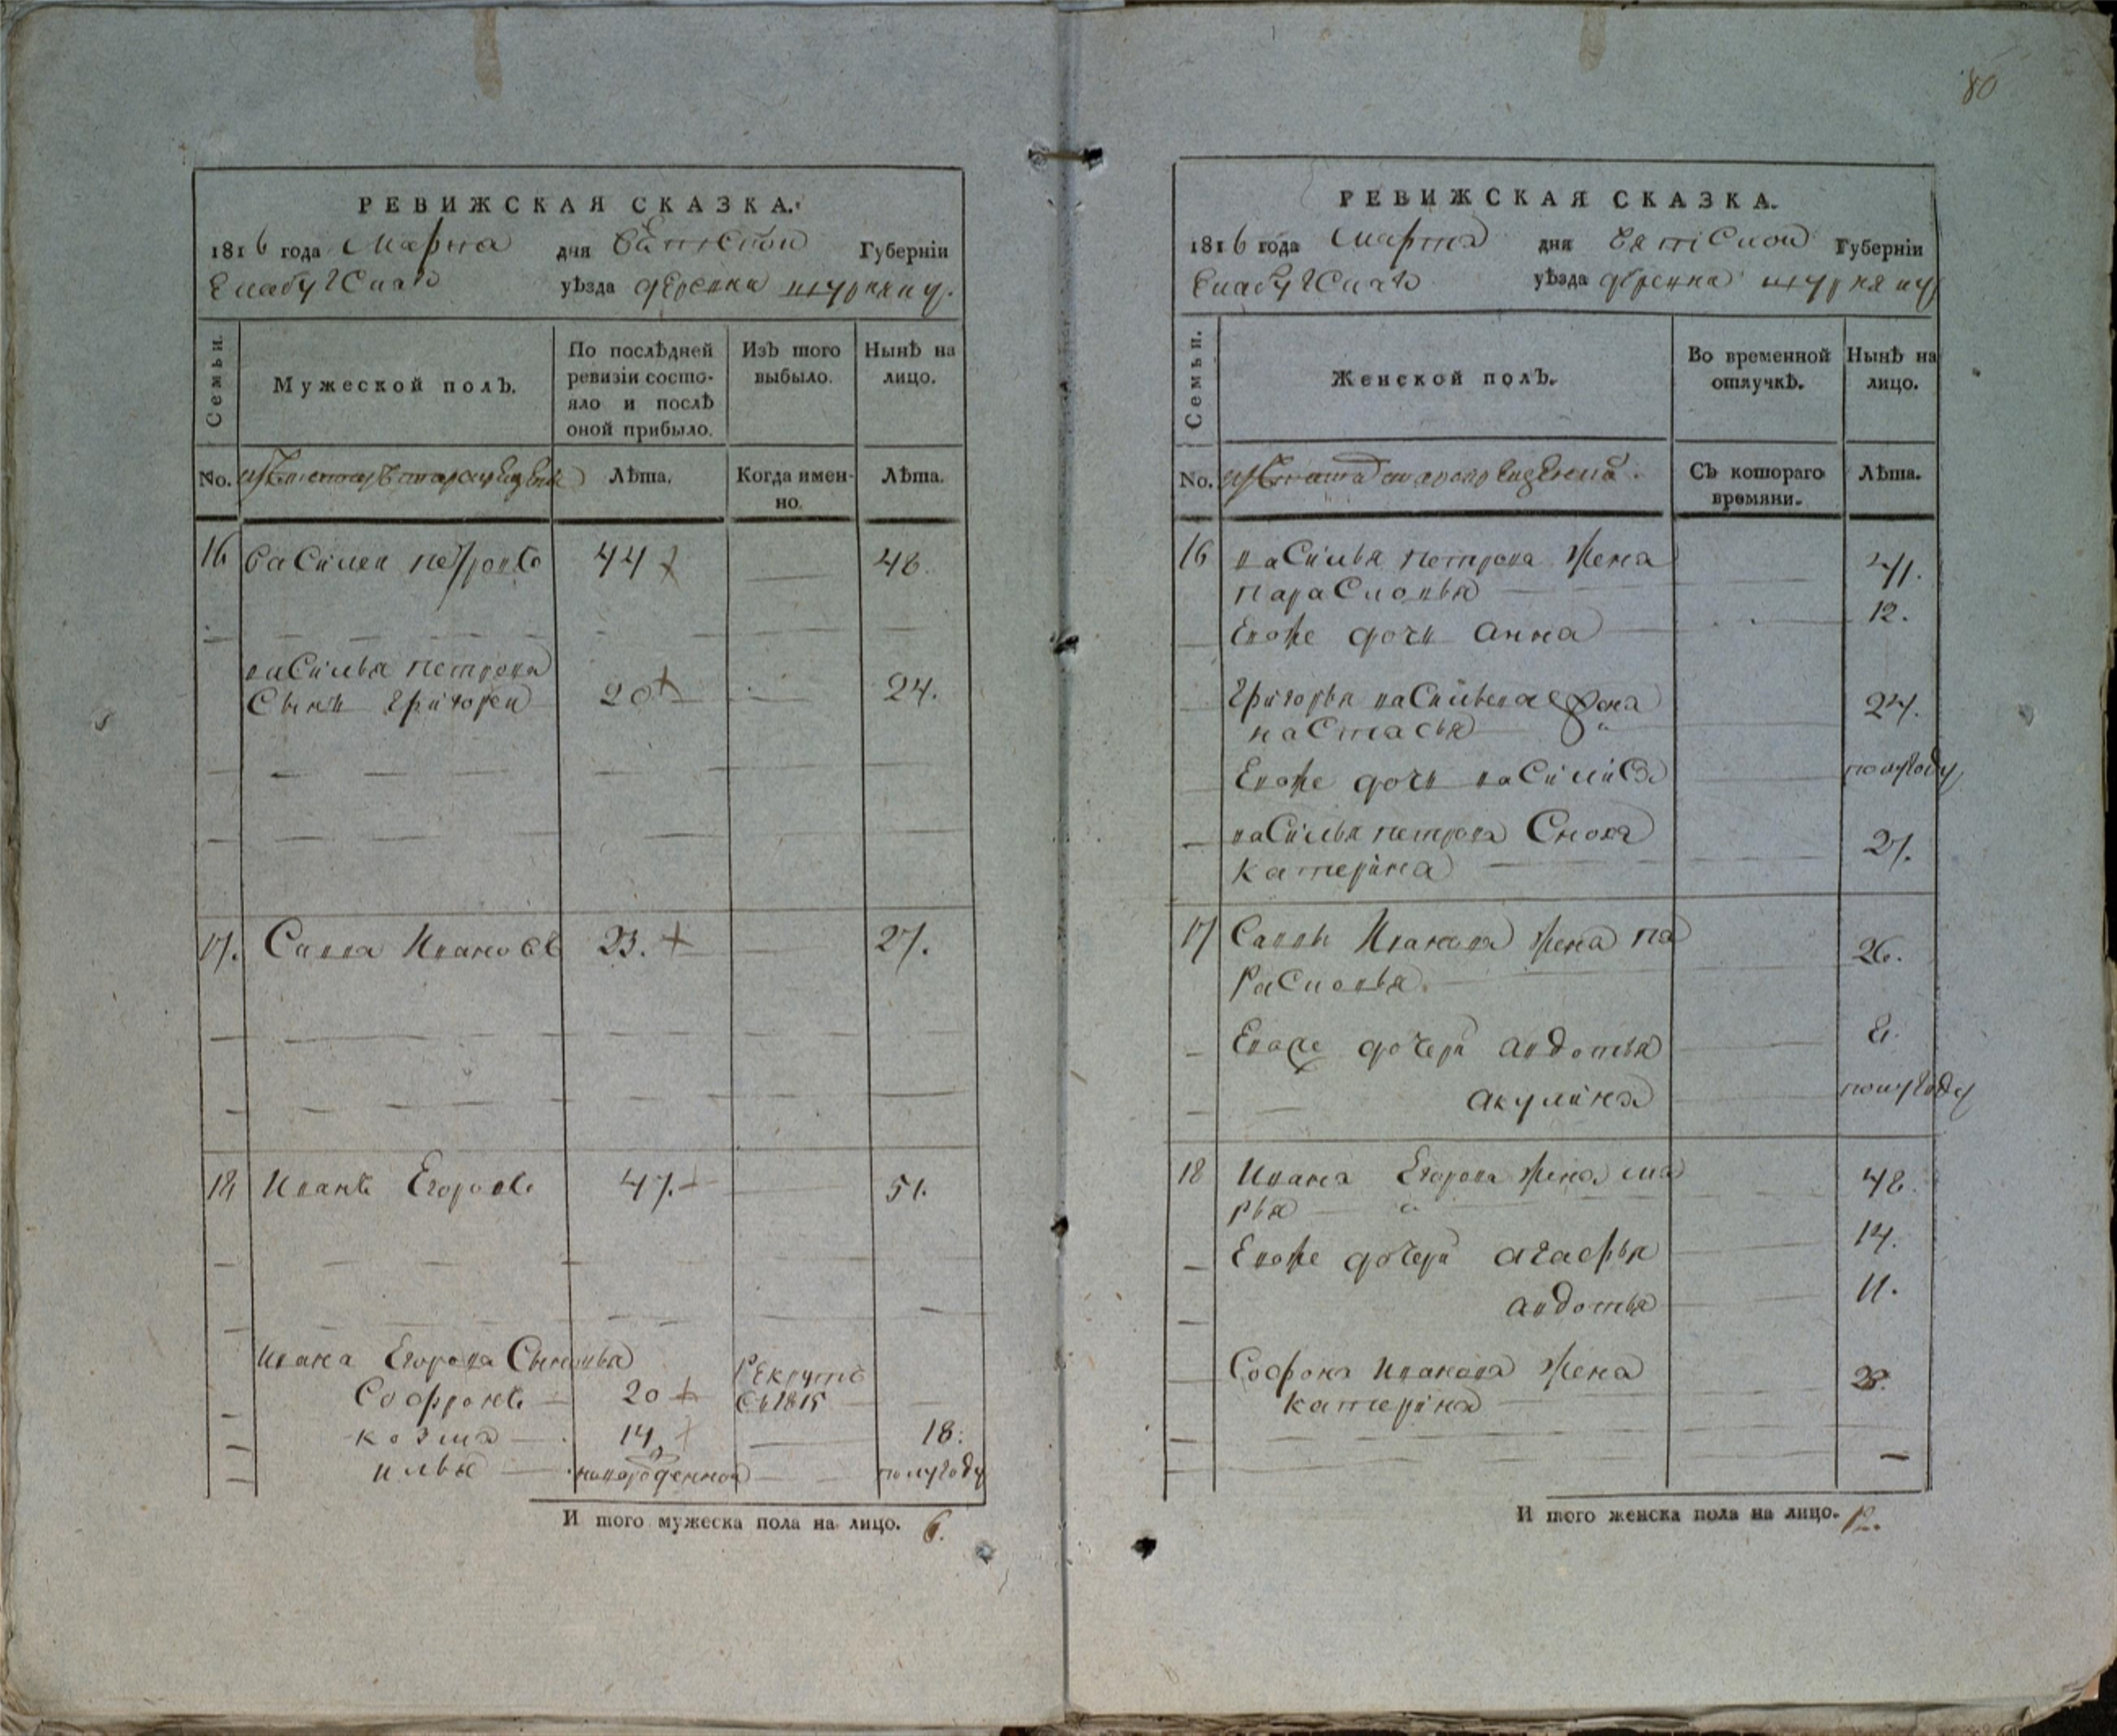 80
РЕВИЖСКАЯ СКАЗКА.
1816 года Марта дня Вятской Губерніи
Елабугскаго уѣзда деревни
Семьи.
Мужеской полъ.
По послѣдней ревизіи состо-
яло и послѣ
оной прибыло.
Изъ того
выбыло.
Нынѣ на
лицо.
No.
Лѣта.
Когда имен-
но.
Лѣта.
16 Василеи петровъ 44 48.
василья петрова
Сынъ Григореи 20 24.
17. Савва Ивановъ 23. 27.
18 Иванъ Егоровъ 47. 51.
Ивана Егорова Сыновья
Софронъ 20 Рекрутъ
Съ 1815
козма 14 18.
илья новорожденной полугоду
И того мужеска пола на лицо. 6.
РЕВИЖСКАЯ СКАЗКА.
1816 года марта дня Вятской Губерніи
Елабугскаго уѣзда деревни
Семьи.
Женской полъ.
Во временной
отлучкѣ.
Нынѣ на
лицо.
No.
Съ котораго
времяни.
Лѣта.
16 василья петрова жена 41.
парасковья
Евоже дочь анна 12.
Григорья васильева жена 24.
настасья
Евоже дочь василиса полугоду
василья петрова Сноха 27.
катерина
17 Саввы Иванова жена па 26.
расковья.
Евоже дочери авдотья 8.
акулина полугоду
18 Ивана Егорова жена ма 48.
рья
Евоже дочери агафья 14.
авдотья 11.
Софона иванова жена 23.
катерина
И того женска пола на лицо. 12.